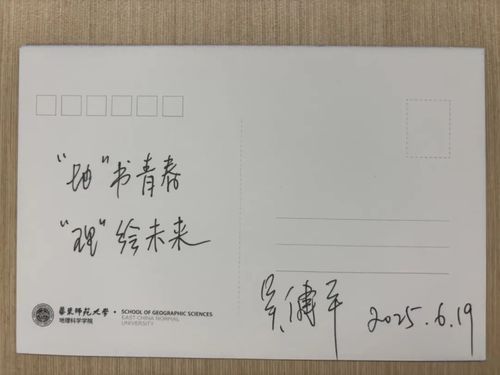 “地”书青春
“理”绘未来
華東師範大學
地理科学学院
SCHOOL OF GEOGRAPHIC SCIENCES
EAST CHINA NORMAL
UNIVERSITY
吴健平 2025.6.19